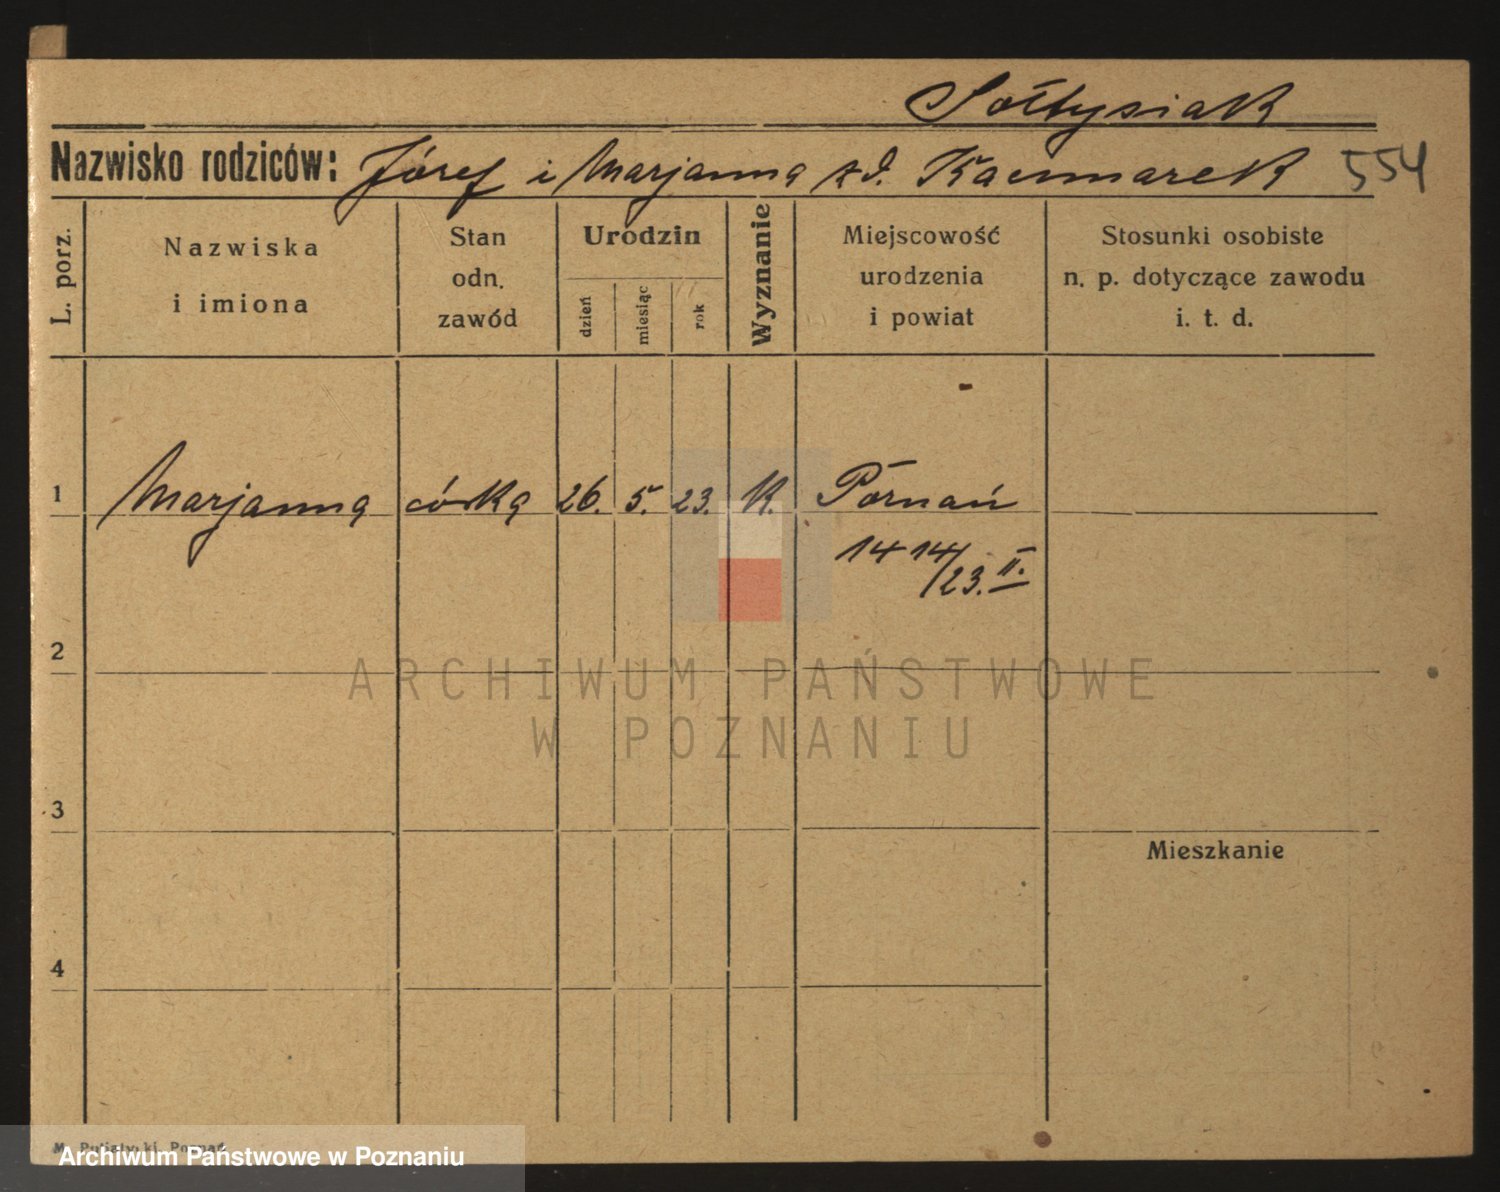 Sołtysiak
Nazwisko rodziców: Józef i Marjanna zd. Kaczmarek 554
L. porz.
Nazwiska
i imiona
Stan
odn.
zawód
Urodzin
dzień
miesiąc
rok
Wyznanie
Miejscowość
urodzenia
i powiat
Stosunki osobiste
n. p. dotyczące zawodu
i. t. d.
1 Marjanna córka 26. 5. 23. K. Poznań
14 14/23. II.
2
3
Mieszkanie
4
ARCHIWUM PAŃSTWOWE
W POZNANIU
Poznań
Archiwum Państwowe w Poznaniu